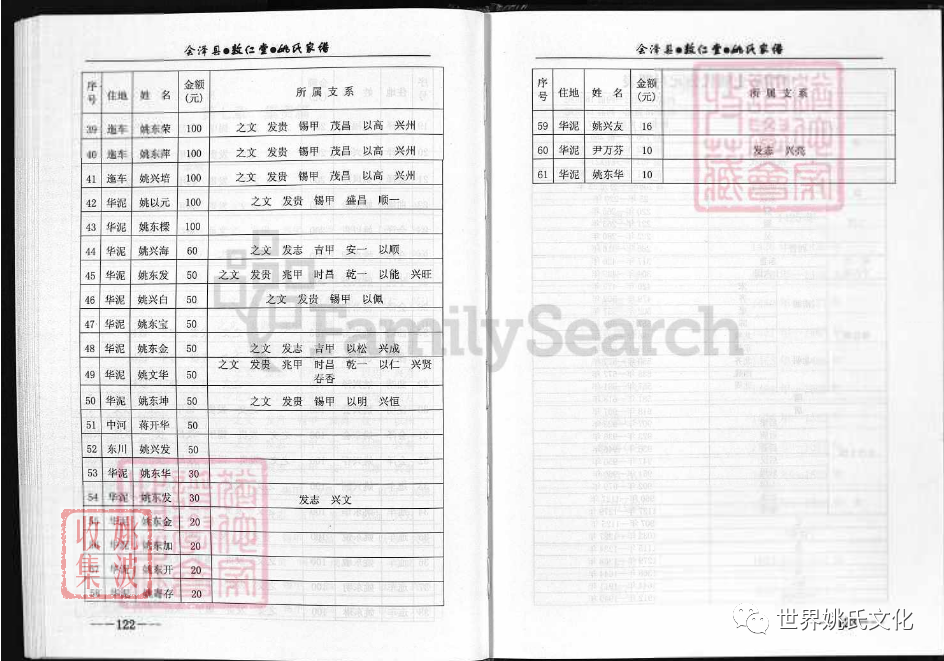 会泽县●敦仁堂●姚氏家谱
序号 住地 姓 名 金额(元) 所 属 支 系
39 迤车 姚东荣 100 之文 发贵 锡甲 茂昌 以高 兴州
40 迤车 姚东萍 100 之文 发贵 锡甲 茂昌 以高 兴州
41 迤车 姚兴培 100 之文 发贵 锡甲 茂昌 以高 兴州
42 华泥 姚以元 100 之文 发贵 锡甲 盛昌 顺一
43 华泥 姚东樑 100
44 华泥 姚兴海 60 之文 发志 吉甲 安一 以顺
45 华泥 姚东发 50 之文 发贵 兆甲 时昌 乾一 以能 兴旺
46 华泥 姚兴白 50 之文 发贵 锡甲 以佩
47 华泥 姚东宝 50
48 华泥 姚东金 50 之文 发志 吉甲 以松 兴成
49 华泥 姚文华 50 之文 发贵 兆甲 时昌 乾一 以仁 兴贤
春香
50 华泥 姚东坤 50 之文 发贵 锡甲 以明 兴恒
51 中河 蒋开华 50
52 东川 姚兴发 50
53 华泥 姚东华 30
54 华泥 姚东发 30 发志 兴文
华泥 姚东金 20
姚东加 20
姚东开 20
华泥 姚寄存 20
姚波
收集
—122—
会泽县●敦仁堂●姚氏家谱
序号 住地 姓 名 金额(元) 所 属 支 系
59 华泥 姚兴友 16
60 华泥 尹万芬 10 发志 兴亮
61 华泥 姚东华 10
FamilySearch
世界姚氏文化